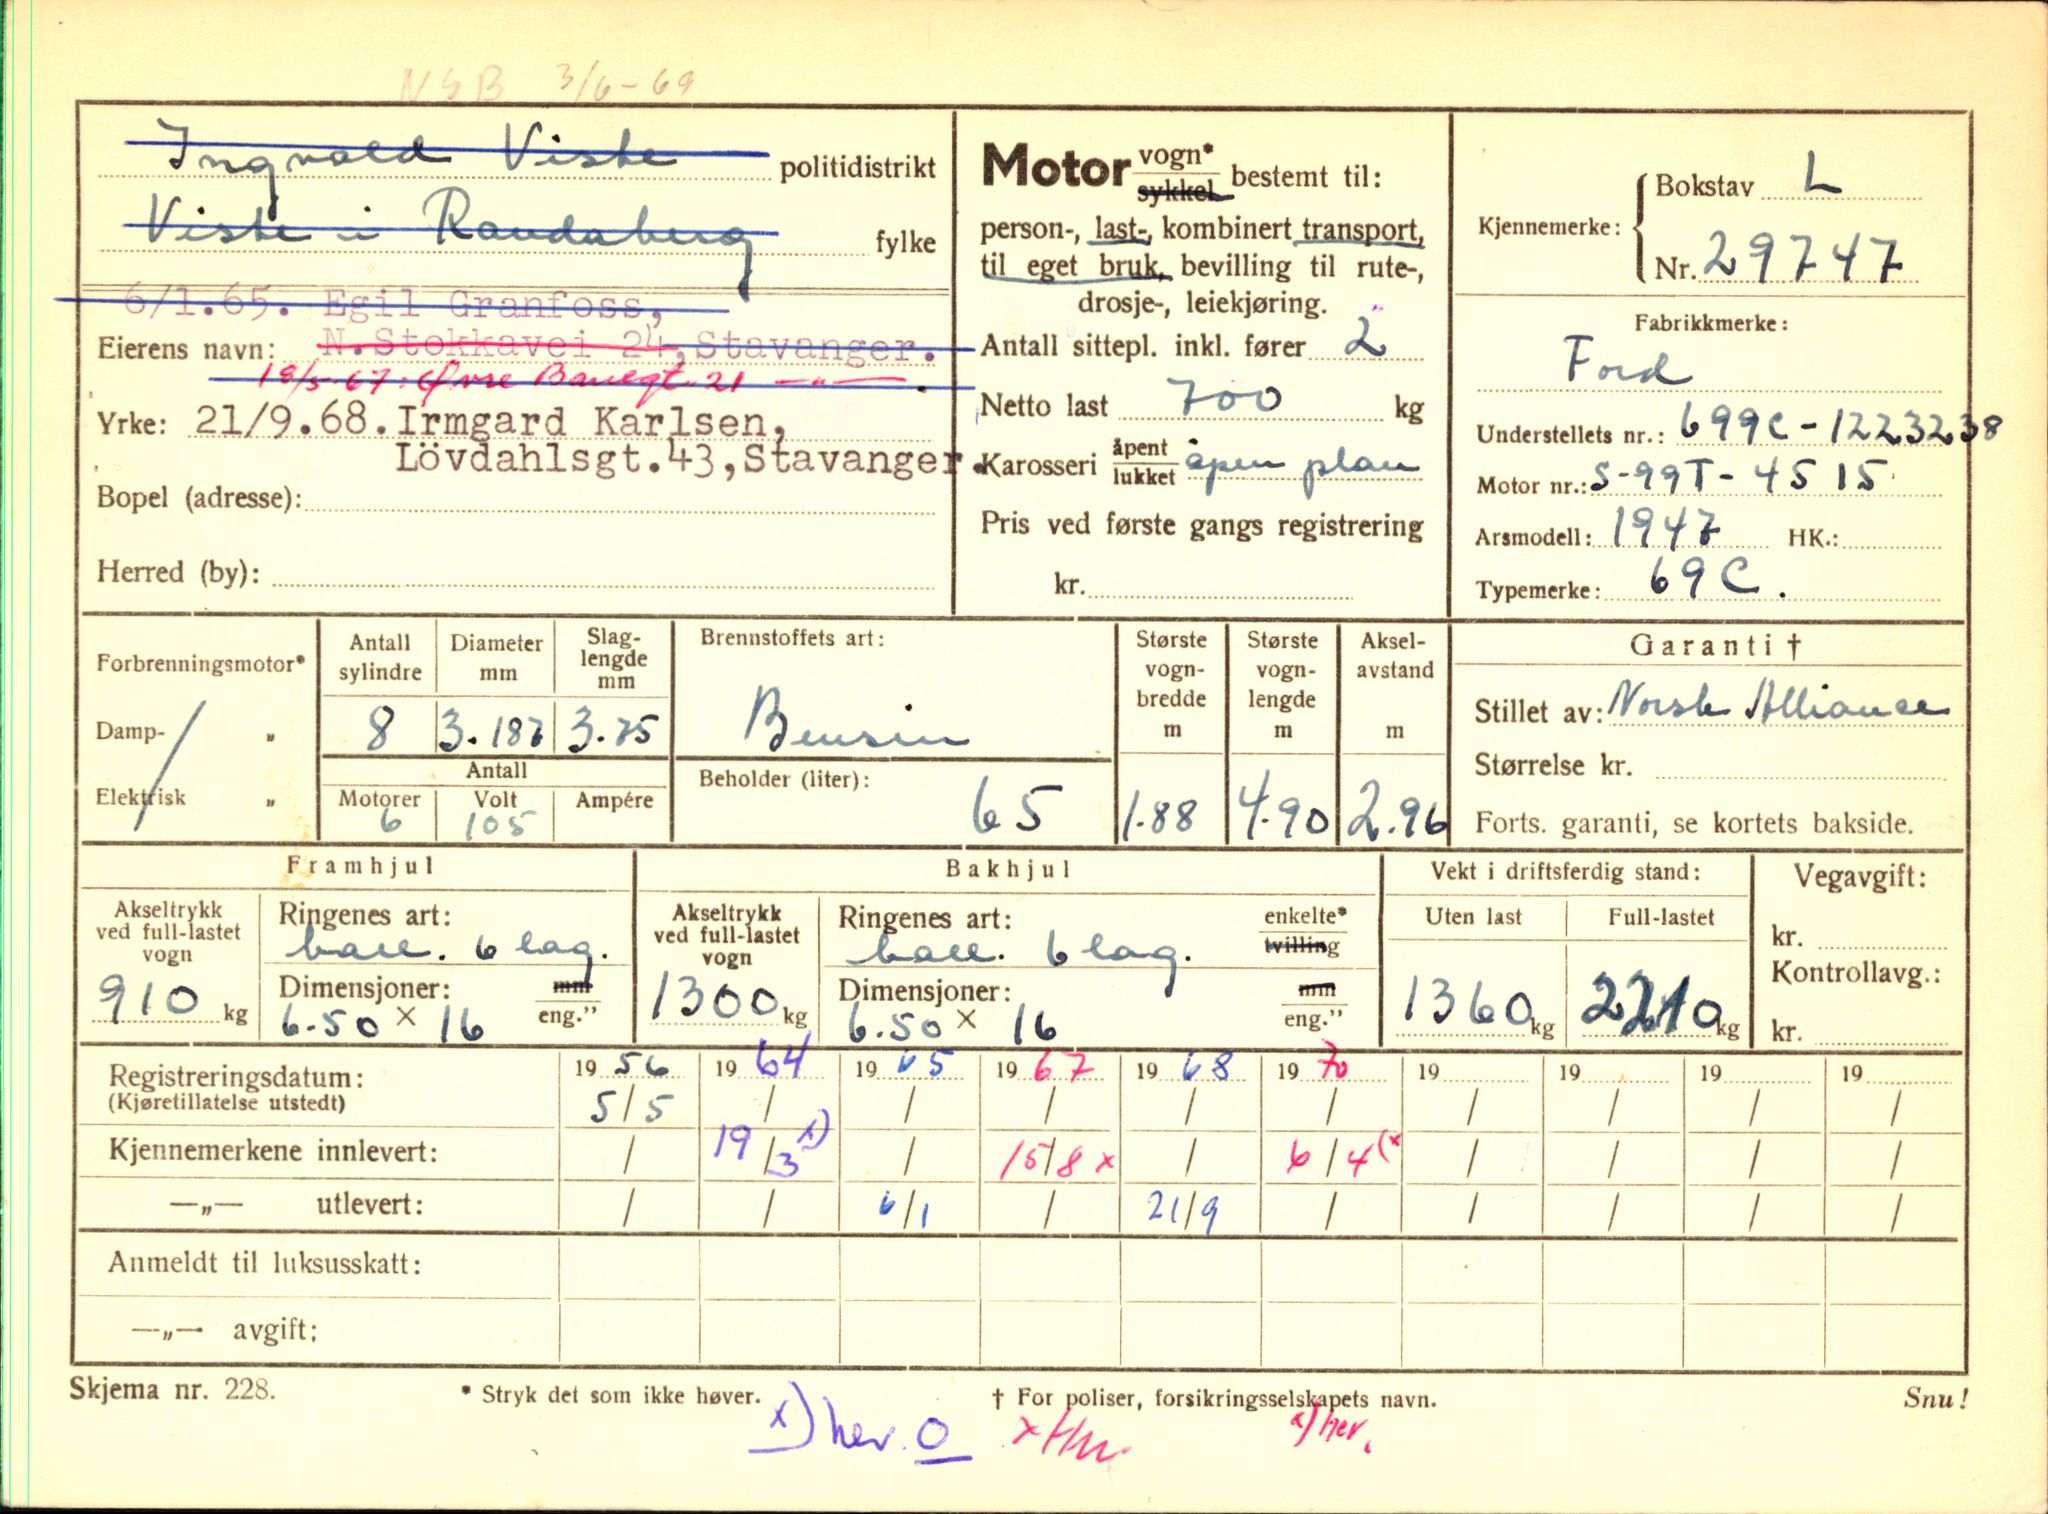 NSB 3/6-69
Ingvald Viste politidistrikt
Viste i Randaberg fylke
6/1.65. Egil Granfoss,
Eierens navn: N.Stokkavei 24, Stavanger.
18/5-67: Øvre Banegt. 21 —"—.
Yrke: 21/9.68. Irmgard Karlsen,
Lövdahlsgt.43, Stavanger.
Bopel (adresse):
Herred (by):
Motor vogn* sykkel bestemt til:
person-, last-, kombinert transport,
til eget bruk, bevilling til rute-,
drosje-, leiekjøring.
Antall sittepl. inkl. fører 2
Netto last 700 kg
Karosseri åpent lukket åpen plan
Pris ved første gangs registrering
kr.
Kjennemerke: Bokstav L
Nr. 29747
Fabrikkmerke:
Ford
Understellets nr.: 699C-1223238
Motor nr.: S-99T-4515
Arsmodell: 1947 HK.:
Typemerke: 69C.
Forbrenningsmotor*
Damp- "
Elektrisk "
Antall sylindre Diameter mm Slag-lengde mm
8 3.187 3.75
Antall
Motorer Volt Ampére
6 105
Brennstoffets art:
Bensin
Beholder (liter):
65
Største vogn-bredde m Største vogn-lengde m Aksel-avstand m
1.88 4.90 2.96
Garanti †
Stillet av: Norsk Alliance
Størrelse kr.
Forts. garanti, se kortets bakside.
Framhjul
Akseltrykk ved full-lastet vogn
910 kg
Ringenes art:
ball. 6 lag.
Dimensjoner: mm eng."
6.50 x 16
Bakhjul
Akseltrykk ved full-lastet vogn
1300 kg
Ringenes art: enkelte* tvilling
ball. 6 lag.
Dimensjoner: mm eng."
6.50 x 16
Vekt i driftsferdig stand:
Uten last Full-lastet
1360 kg 2210 kg
Vegavgift:
kr.
Kontrollavg.:
kr.
Registreringsdatum: 1956 1964 1965 1967 1968 1970 19 19 19 19
(Kjøretillatelse utstedt) 5/5 / / / / / / / / /
Kjennemerkene innlevert: / 19/3 x) / 15/8 x / 6/4 (x / / / /
—"— utlevert: / / 6/1 / 21/9 / / / / /
Anmeldt til luksusskatt:
—"— avgift:
Skjema nr. 228. * Stryk det som ikke høver. † For poliser, forsikringsselskapets navn. Snu!
x) her. O x) her.